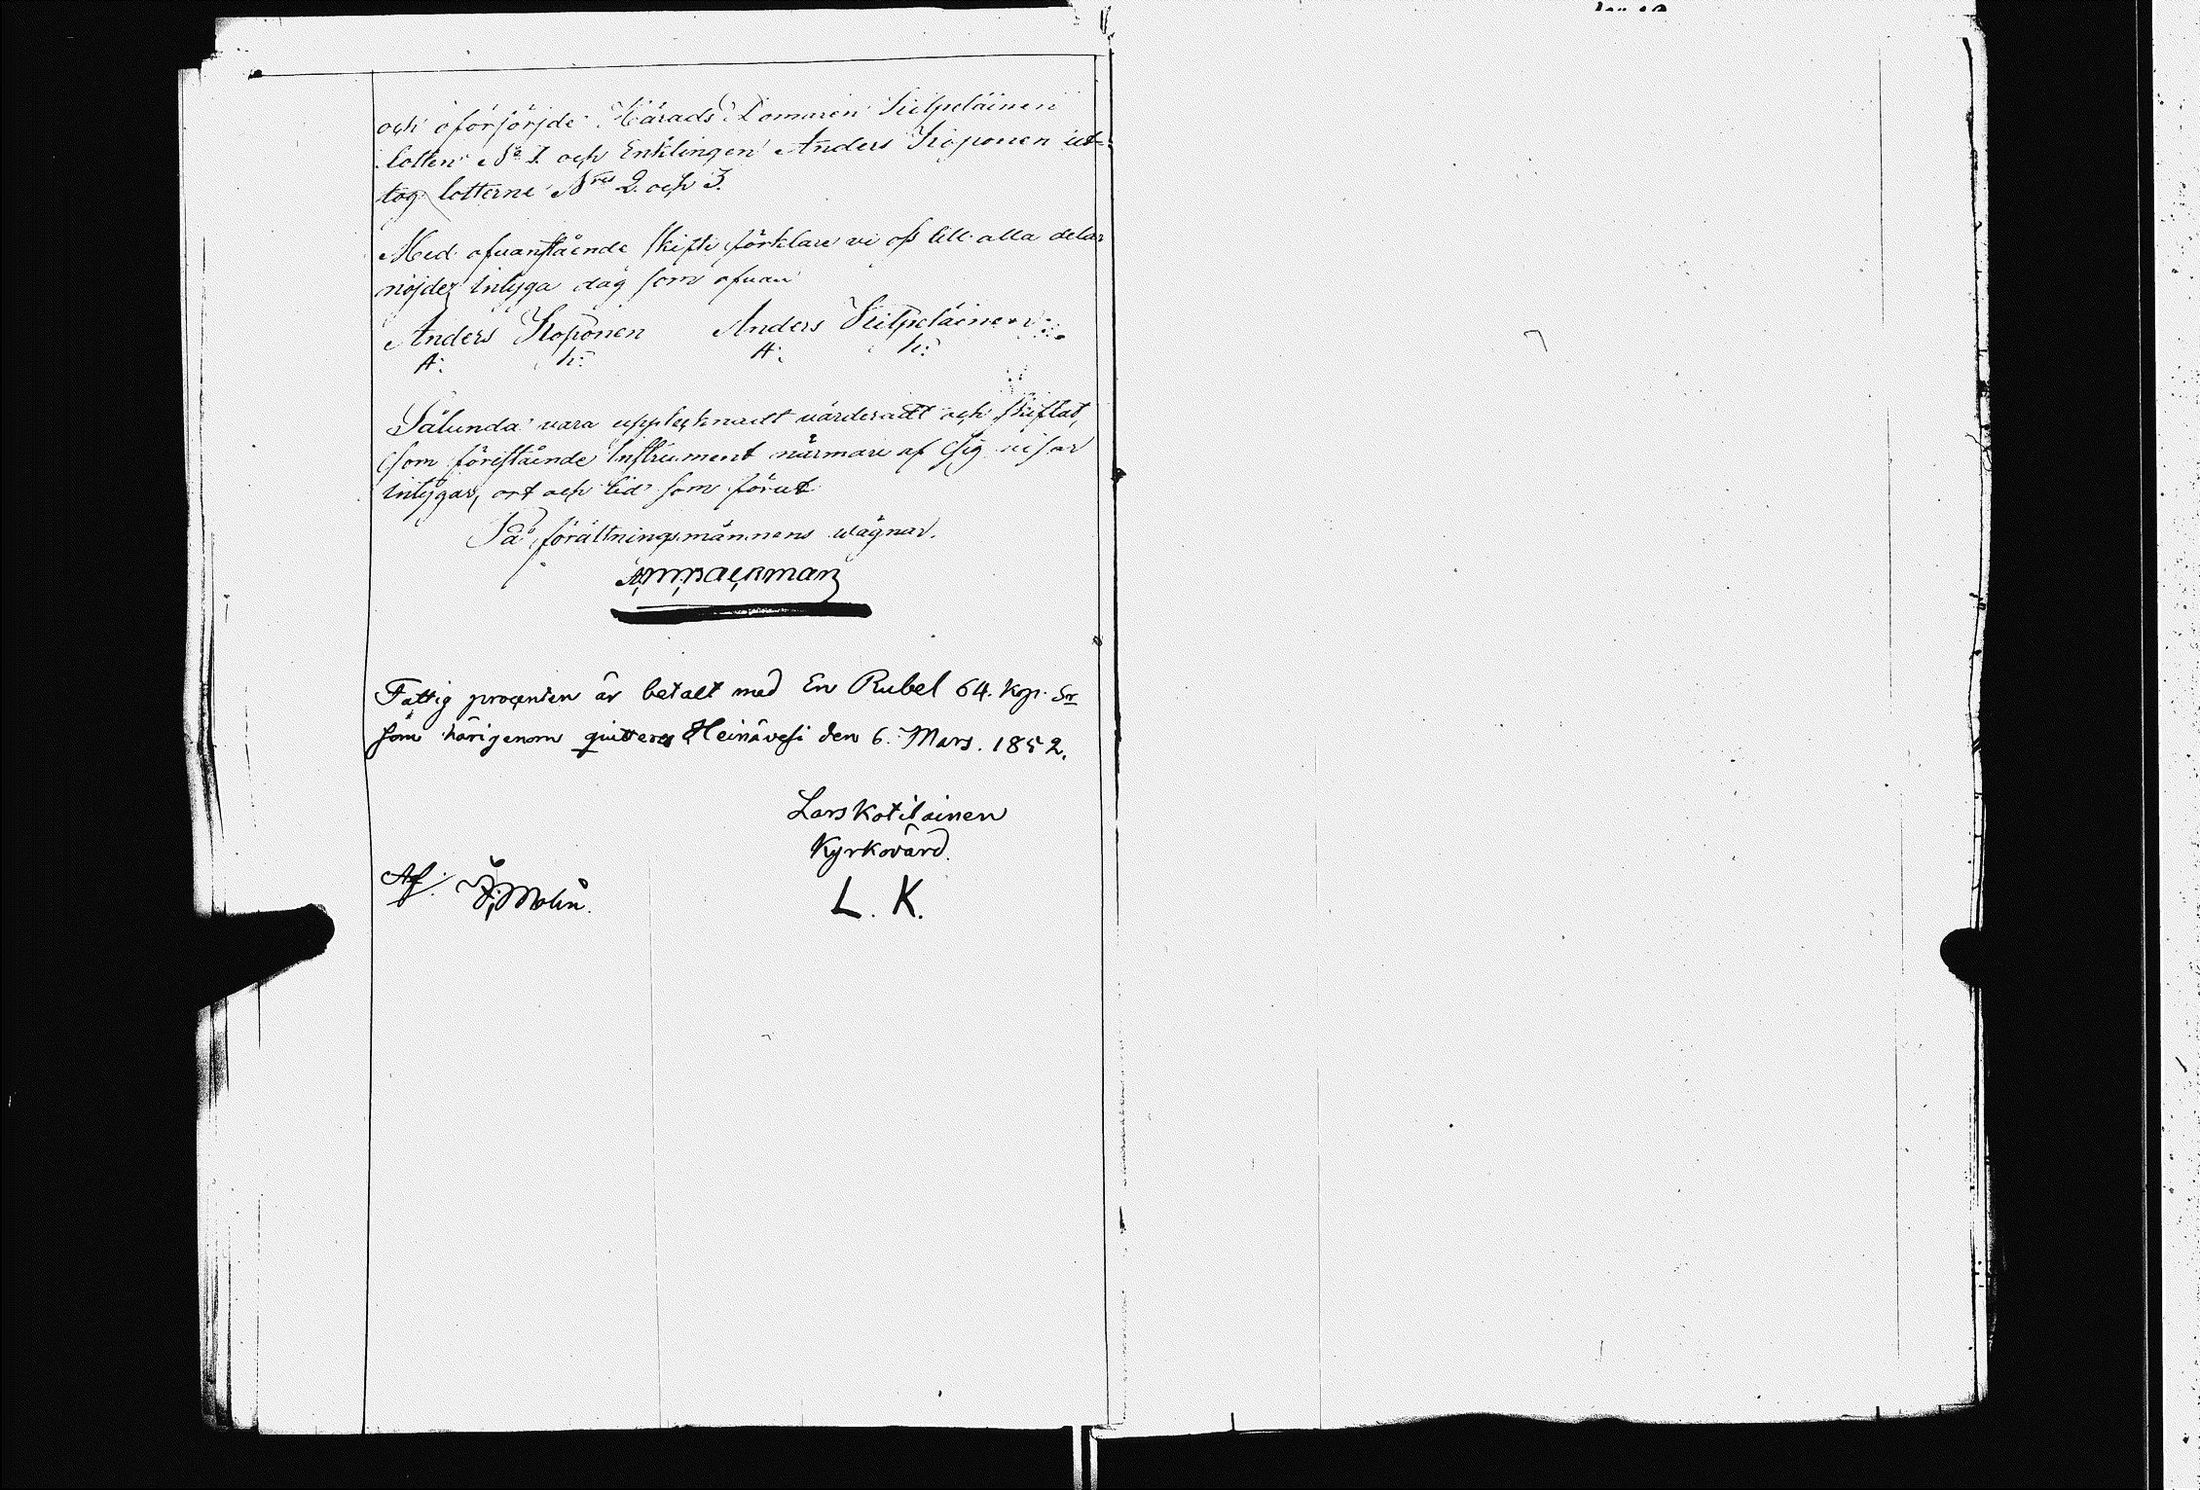 och oförjörjde Härads Domaren Kilpeläinen
lotten No 1. och Enklingen Anders Koponen ut-
tog lotterne Nris 2. och 3.
Med ofvanstående skifte förklare vi oss till alla delar
nöjde, intyga dag som ofvan
Anders Koponen Anders Kilpeläinen
A: K: A: K:
Sålunda vara upptecknadt värderadt och skiftat,
som förestående Instrument närmare af sig visar
intygar, ort och tid som förut
På förättningsmännens wägnar.
Backman
Fattig procenten är betalt med En Rubel 64. Kop. Sr
som härigenom quitteras Heinävesi den 6. Mars. 1852.
Lars Kotilainen
Kyrkovärd.
Af: Molin.
L. K.